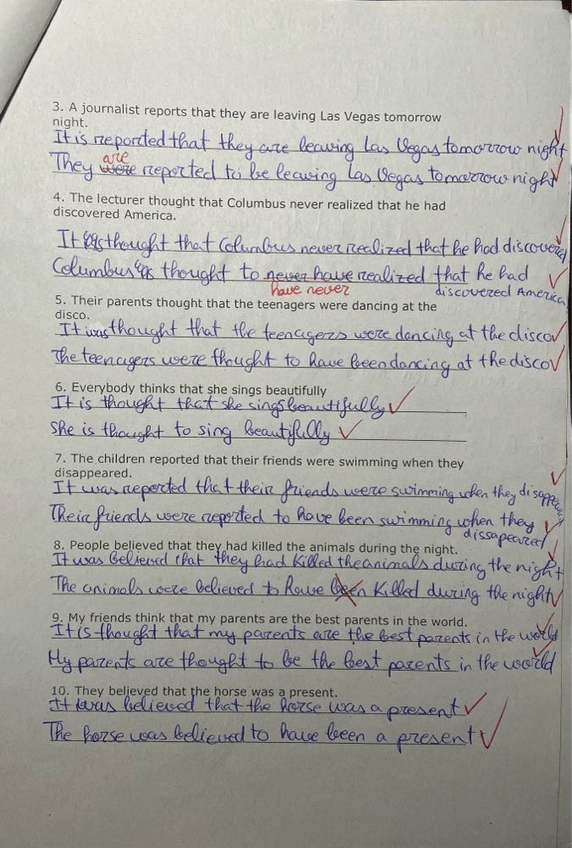 3. A journalist reports that they are leaving Las Vegas tomorrow
night.
It is reported that they are leaving Las Vegas tomorrow night
are
They were reported to be leaving Las Vegas tomorrow night
4. The lecturer thought that Columbus never realized that he had
discovered America.
It was thought that Columbus never realized that he had discovered
Columbus was thought to never have realized that he had
have never
discovered America
5. Their parents thought that the teenagers were dancing at the
disco.
It was thought that the teenagers were dancing at the disco
The teenagers were thought to have been dancing at the disco
6. Everybody thinks that she sings beautifully
It is thought that she sings beautifully
She is thought to sing beautifully
7. The children reported that their friends were swimming when they
disappeared.
It was reported that their friends were swimming when they
Their friends were reported to have been swimming when they
dissapeared
8. People believed that they had killed the animals during the night.
It was believed that they had killed the animals during the night
The animals were believed to have been killed during the night
9. My friends think that my parents are the best parents in the world.
It is thought that my parents are the best parents in the world
My parents are thought to be the best parents in the world
10. They believed that the horse was a present.
It was believed that the horse was a present
The horse was believed to have been a present